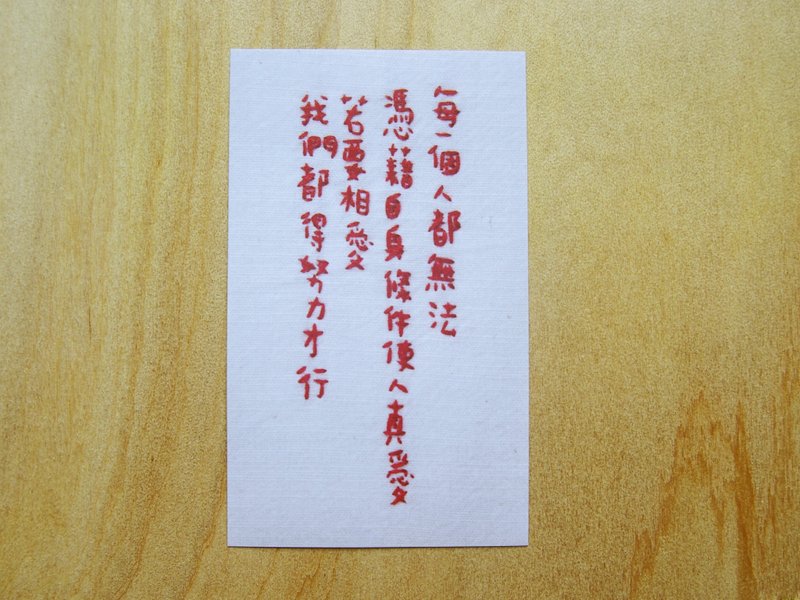 每一個人都無法
憑藉自身條件使人真愛
若要相愛
我們都得努力才行